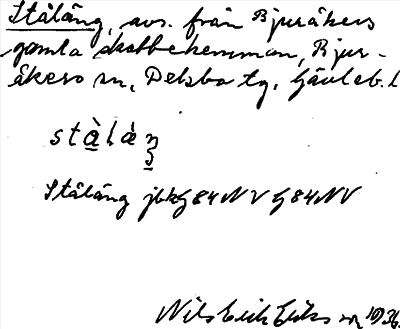 Stålång, avs. från Bjuråkers
gamla skattehemman, Bjur-
åkers sn, Delsbo tg, Gävleb. l
stàlàŋ
Stålång jbkg 84 NV g 84 NV
Nils Erik 1936.